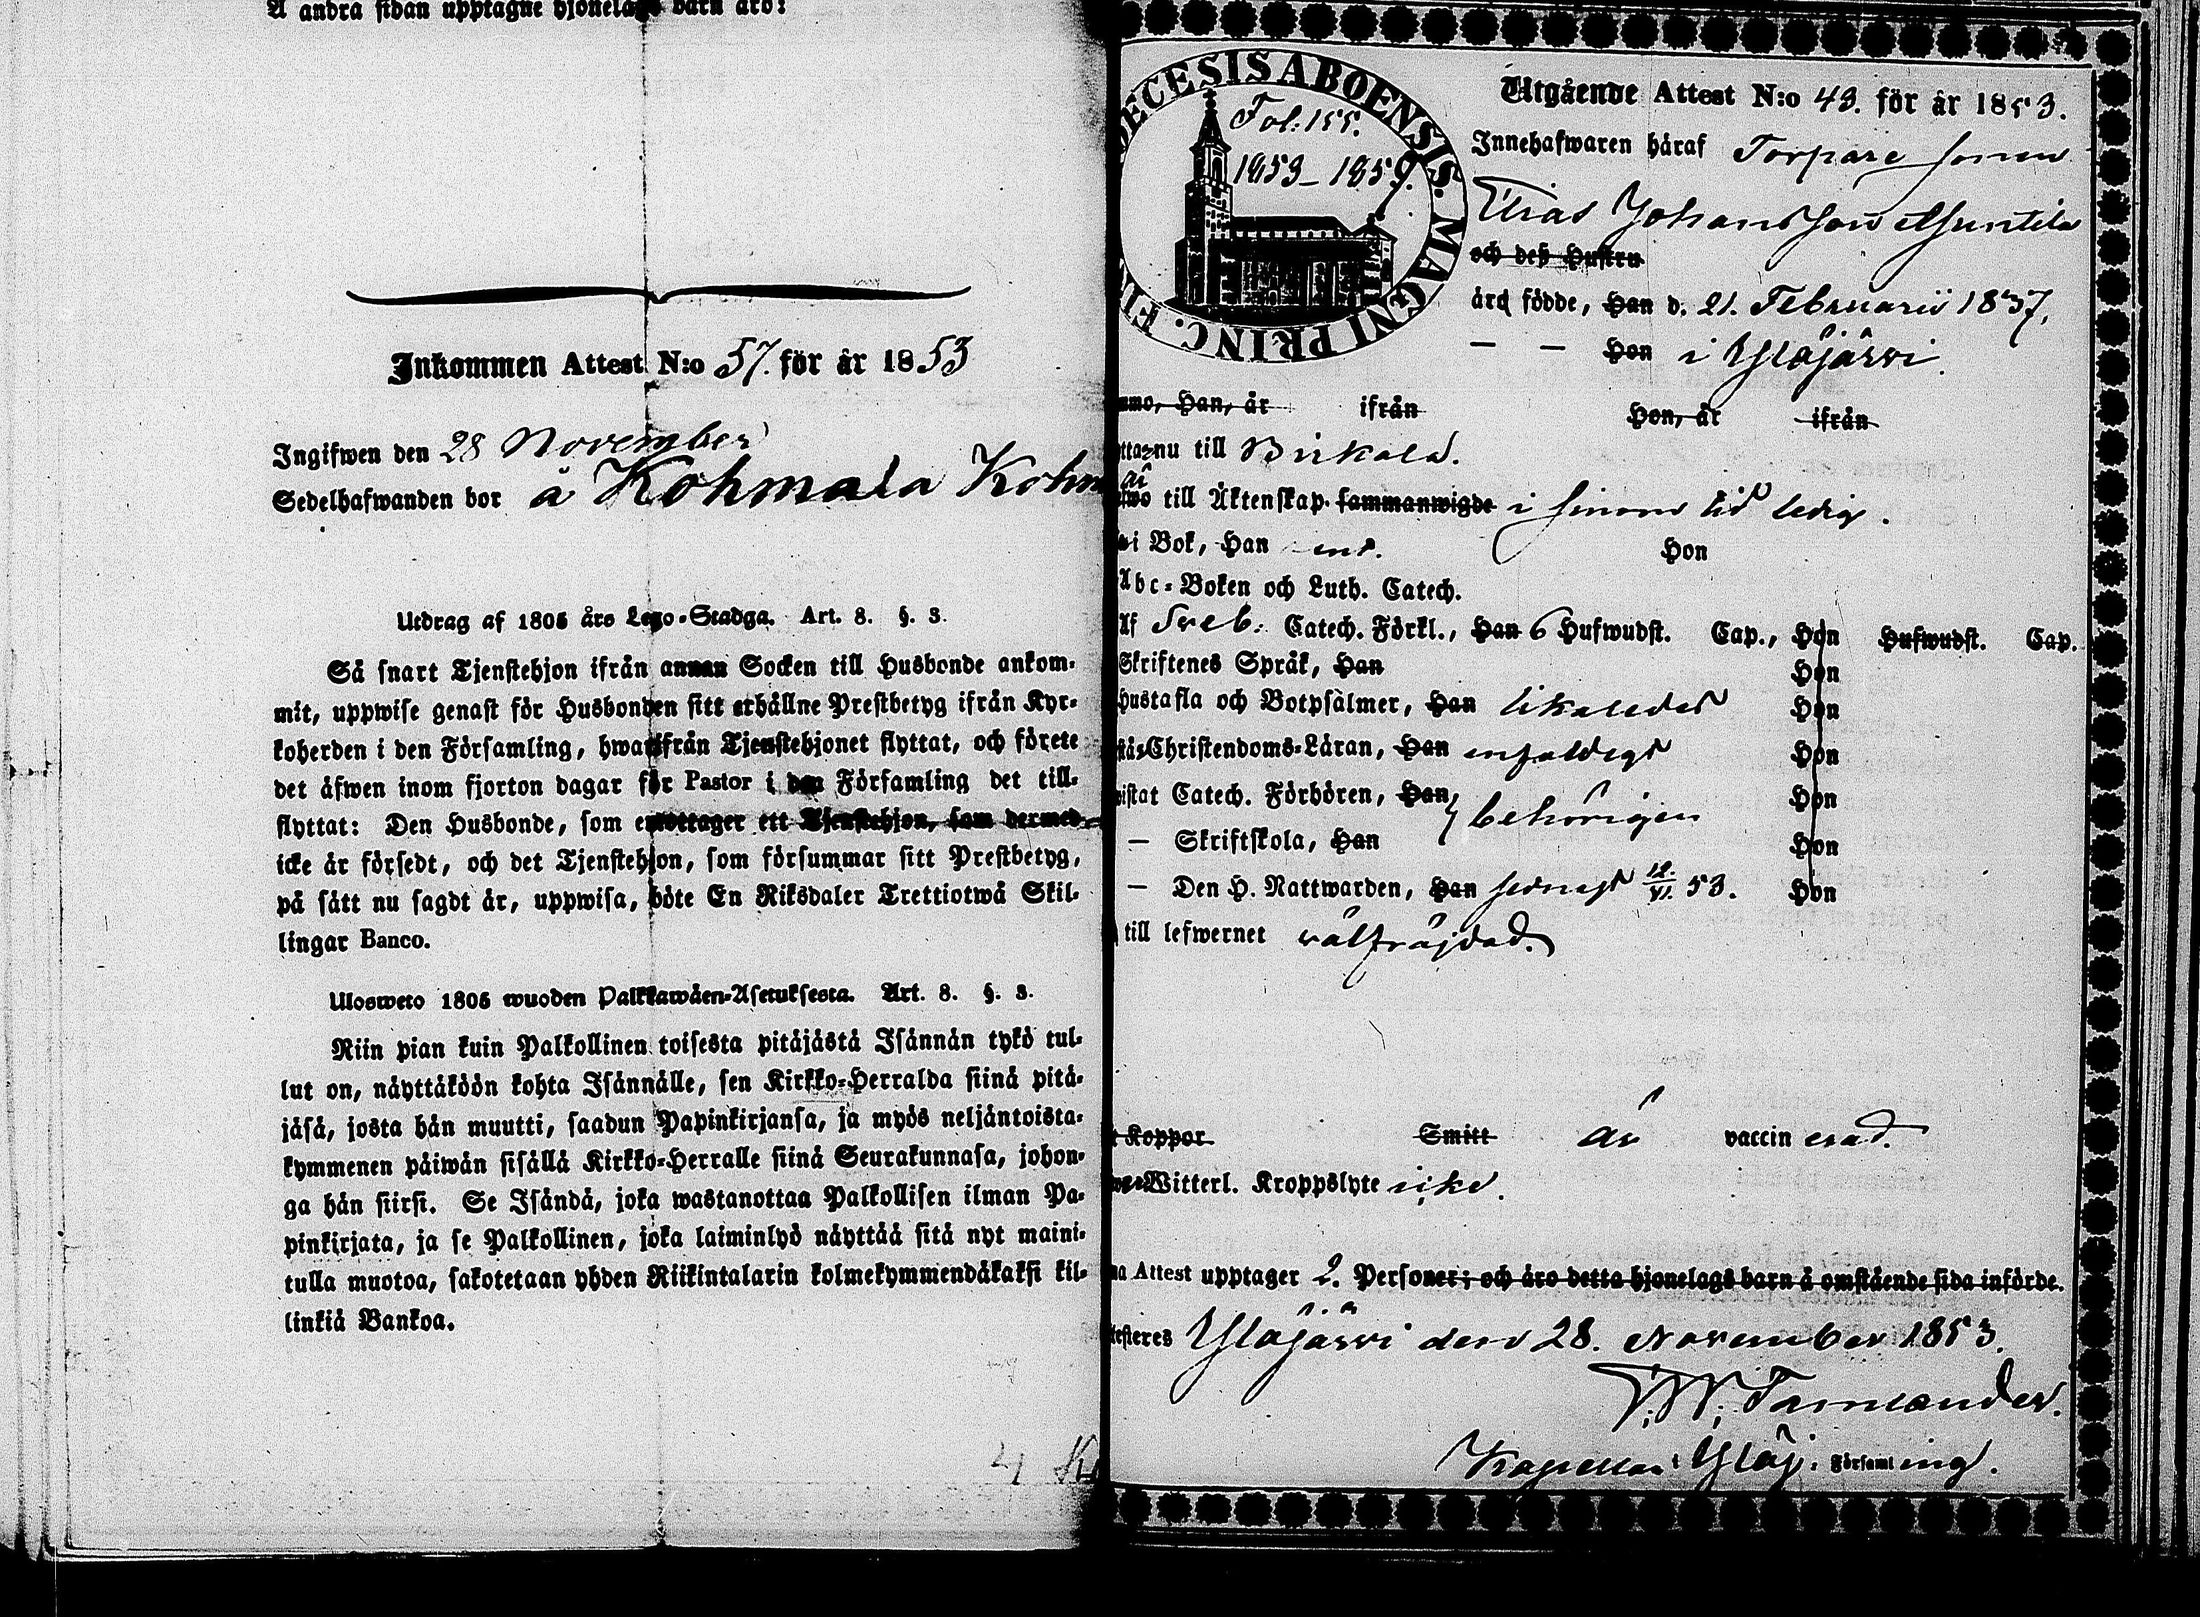 Å andra sidan upptagne hjonelags barn äro:
Inkommen Attest N:o 57. för år 1853
Ingifwen den 28 November
Sedelhafwanden bor å Kohmala Kohm
Utdrag af 1805 års Lego-Stadga. Art. 8. §. 3.
Så snart Tjenstehjon ifrån annan Socken till Husbonde ankom-
mit, uppwise genast för Husbonden sitt erhållne Prestbetyg ifrån Kyr-
koherden i den Församling, hwarifrån Tjenstehjonet flyttat, och förete
det äfwen inom fjorton dagar för Pastor i den Församling det till-
flyttat: Den Husbonde, som emottager ett Tjenstehjon, som dermed
icke är försedt, och det Tjenstehjon, som försummar sitt Prestbetyg,
på sätt nu sagdt är, uppwisa, böte En Riksdaler Trettiotwå Skil-
lingar Banco.
Ulosweto 1805 wuoden Palkkawäen-Asetuksesta. Art. 8. §. 3.
Niin pian kuin Palkollinen toisesta pitäjästä Isännän tykö tul-
lut on, näyttäköön kohta Isännälle, sen Kirkko-Herralda siinä pitä-
jäsä, josta hän muutti, saadun Papinkirjansa, ja myös neljäntoista-
kymmenen päiwän sisällä Kirkko-Herralle siinä Seurakunnasa, johon-
ga hän siirsi. Se Isändä, joka wastanottaa Palkollisen ilman Pa-
pinkirjata, ja se Palkollinen, joka laiminlyö näyttää sitä nyt maini-
tulla muotoa, sakotetaan yhden Riikintalarin kolmekymmendäkaksi kil-
linkiä Bankoa.
ECESIS ABOENSIS. MAGNI PRINC. FI
Fol: 155.
1853-1859.
Utgående Attest N:o 43. för år 1853.
Innehafwaren häraf Torpare sonen
Elias Johansson
och deß Hustru
äro födde, Han d. 21. Februarii 1837.
— — Hon i Ylöjärwi.
Han, är ifrån Hon, är ifrån
nu till Birkala.
till Äktenskap sammanwigde i sinom tid ledig.
i Bok, Han Hon
Abc-Boken och Luth. Catech.
Af Sveb. Catech. Förkl., Han 6 Hufwudst. Cap., Hon Hufwudst. Cap.
Skriftenes Språk, Han Hon
Hustafla och Botpsalmer, Han likaledes Hon
Christendoms-Läran, Han enfaldigt Hon
Catech. Förhören, Han, behörigen Hon
— Skriftskola, Han Hon
— Den H. Nattwarden, Han sednast 12/VI. 53. Hon
till lefwernet wälfräjdad.
Koppor Smitt är vaccinerad.
Witterl. Kroppslyte icke.
Attest upptager 2. Personer; och äro detta hjonelags barn å omstående sida införde.
Ylöjärwi den 28. November 1853.
Kapellan i Ylöj. Församling.